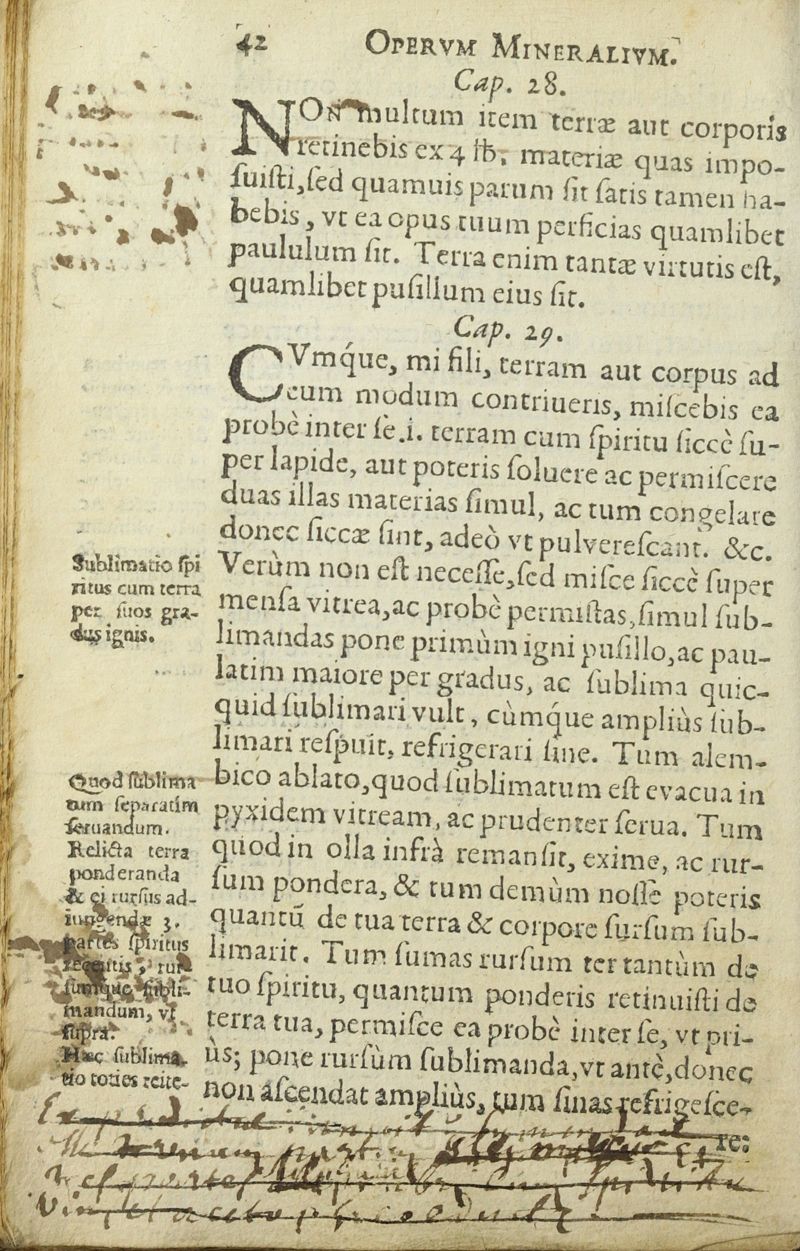 42 OPERVM MINERALIVM.
Cap. 28.
NON multum item terræ aut corporis
retinebis ex 4 ℔. materiæ quas impo-
ſuiſti, ſed quamuis parum ſit ſatis tamen ha-
bebis, vt ea opus tuum perficias quamlibet
paululum ſit. Terra enim tantæ virtutis eſt,
quamlibet puſillum eius ſit.
Cap. 29.
CVmq́ue, mi fili, terram aut corpus ad
eum modum contriueris, miſcebis ea
probè inter ſe .i. terram cum ſpiritu ſiccè ſu-
per lapide, aut poteris ſoluere ac permiſcere
duas illas materias ſimul, ac tum congelare
donec ſiccæ ſint, adeò vt pulvereſcant. &c.
Verùm non eſt neceſſe, ſed miſce ſiccè ſuper
menſa vitrea, ac probè permiſtas, ſimul ſub-
limandas pone primùm igni puſillo, ac pau-
latim maiore per gradus, ac ſublima quic-
quid ſublimari vult, cùmq́ue ampliùs ſub-
limari reſpuit, refrigerari ſine. Tum alem-
bico ablato, quod ſublimatum eſt evacua in
pyxidem vitream, ac prudenter ſerua. Tum
quod in olla infrà remanſit, exime, ac rur-
ſum pondera, & tum demùm noſſe poteris
quantũ de tua terra & corpore ſurſum ſub-
limarit. Tum ſumas rurſum ter tantùm de
tuo ſpiritu, quantum ponderis retinuiſti de
terra tua, permiſce ea probè inter ſe, vt pri-
ùs; pone rurſùm ſublimanda, vt antè, donec
non aſcendat ampliùs, tum ſinas refrigeſce-
re:
Sublimatio ſpi
ritus cum terra
per ſuos gra-
dus ignis.
Quod ſublima
tum ſeparatim
ſeruandum.
Relicta terra
ponderanda
& ei rurſus ad-
iungendæ 3.
partes ſpiritus
rur
ſubli-
mandum, vt
ſupra.
Hæc ſublima
tio toties reite-